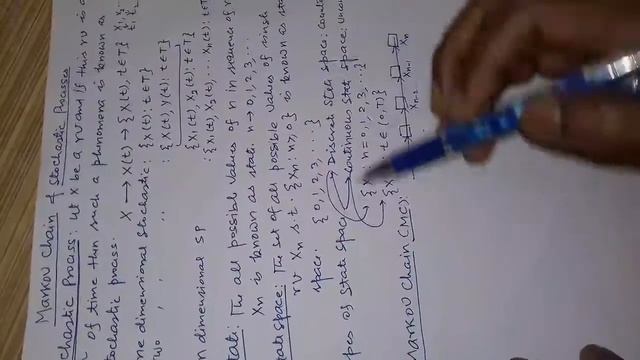 MARKOV CHAIN & STOCHASTIC PROCESSES
chastic Process: Let X be a rv and if this rv is a
n of time then such a phenomena is known as
tochastic process. X → X(t) → {X(t), t∈T}
ne dimensional stochastic: {X(t): t∈T}
Two , , : {X(t), Y(t): t∈T}
{X1(t), X2(t); t∈T}
n dimensional SP : {X1(t), X2(t), ... Xn(t): t∈T
tate: The all possible values of n in sequence of r
Xn is known as state. n → 0, 1, 2, 3, ...
tate space: The set of all possible values of
rv Xn s.t. {Xn: n≥0} is known as stat
space. {0, 1, 2, 3, ... }
pes of State Space → Discrete state space: Count
→ Continuous state space: Unco
{X : n = 0, 1, 2, 3, ...}
{X t ∈ (0, T)}
MARKOV CHAIN (MC): Xn-2 Xn-1 Xn